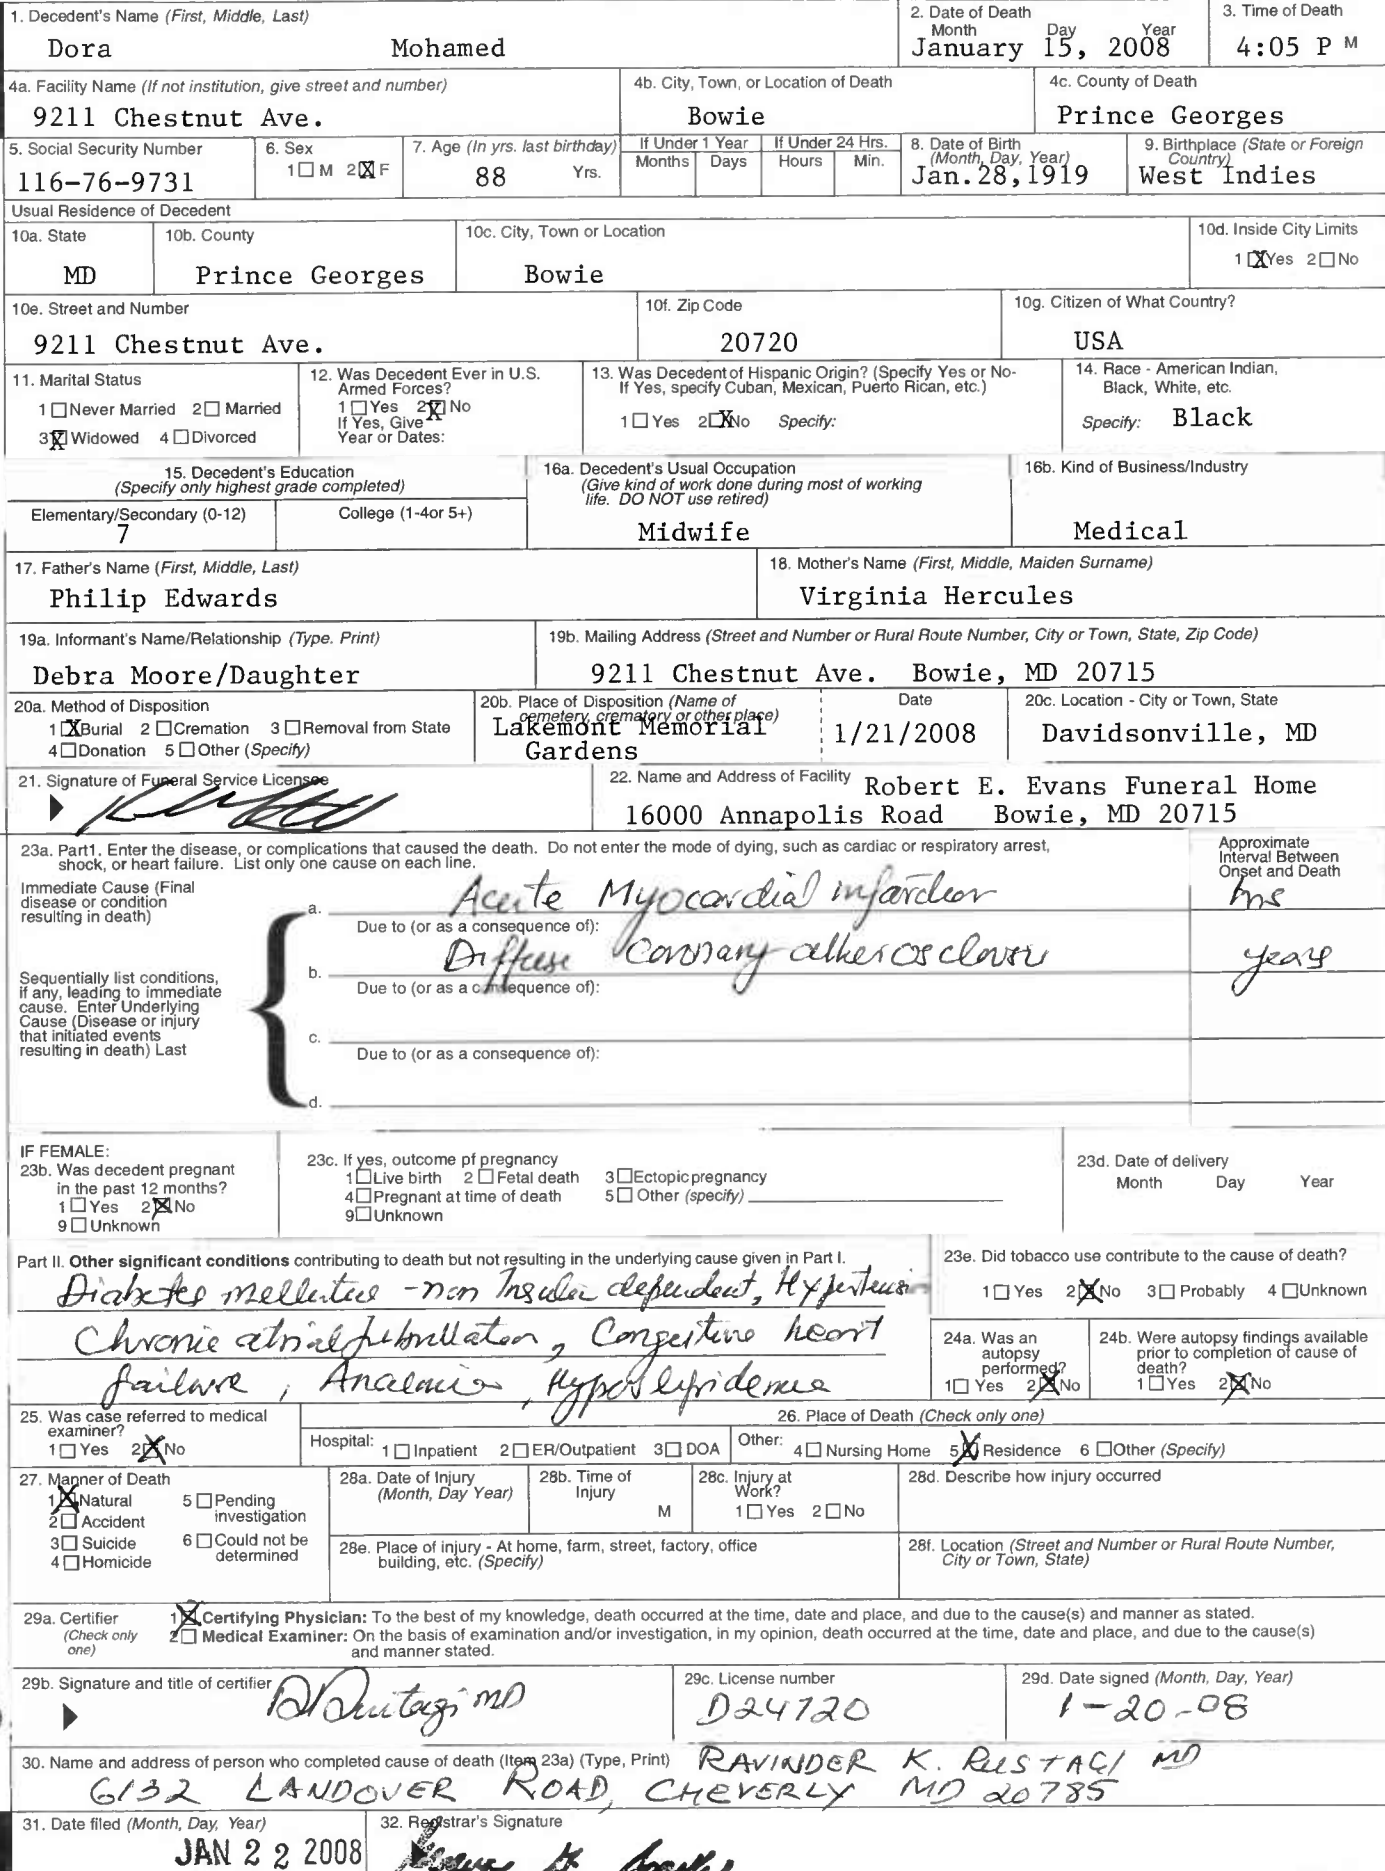 1. Decedent's Name (First, Middle, Last)
Dora Mohamed
2. Date of Death
Month Day Year
January 15, 2008
3. Time of Death
4:05 P M
4a. Facility Name (If not institution, give street and number)
9211 Chestnut Ave.
4b. City, Town, or Location of Death
Bowie
4c. County of Death
Prince Georges
5. Social Security Number
116-76-9731
6. Sex
1 ☐ M 2 ☒ F
7. Age (In yrs. last birthday)
88 Yrs.
If Under 1 Year
Months Days
If Under 24 Hrs.
Hours Min.
8. Date of Birth
(Month, Day, Year)
Jan.28,1919
9. Birthplace (State or Foreign
Country)
West Indies
Usual Residence of Decedent
10a. State
MD
10b. County
Prince Georges
10c. City, Town or Location
Bowie
10d. Inside City Limits
1 ☒ Yes 2 ☐ No
10e. Street and Number
9211 Chestnut Ave.
10f. Zip Code
20720
10g. Citizen of What Country?
USA
11. Marital Status
1 ☐ Never Married 2 ☐ Married
3 ☒ Widowed 4 ☐ Divorced
12. Was Decedent Ever in U.S.
Armed Forces?
1 ☐ Yes 2 ☒ No
If Yes, Give
Year or Dates:
13. Was Decedent of Hispanic Origin? (Specify Yes or No-
If Yes, specify Cuban, Mexican, Puerto Rican, etc.)
1 ☐ Yes 2 ☒ No Specify:
14. Race - American Indian,
Black, White, etc.
Specify: Black
15. Decedent's Education
(Specify only highest grade completed)
Elementary/Secondary (0-12)
7
College (1-4or 5+)
16a. Decedent's Usual Occupation
(Give kind of work done during most of working
life. DO NOT use retired)
Midwife
16b. Kind of Business/Industry
Medical
17. Father's Name (First, Middle, Last)
Philip Edwards
18. Mother's Name (First, Middle, Maiden Surname)
Virginia Hercules
19a. Informant's Name/Relationship (Type. Print)
Debra Moore/Daughter
19b. Mailing Address (Street and Number or Rural Route Number, City or Town, State, Zip Code)
9211 Chestnut Ave. Bowie, MD 20715
20a. Method of Disposition
1 ☒ Burial 2 ☐ Cremation 3 ☐ Removal from State
4 ☐ Donation 5 ☐ Other (Specify)
20b. Place of Disposition (Name of
cemetery, crematory or other place)
Lakemont Memorial
Gardens
Date
1/21/2008
20c. Location - City or Town, State
Davidsonville, MD
21. Signature of Funeral Service Licensee
22. Name and Address of Facility Robert E. Evans Funeral Home
16000 Annapolis Road Bowie, MD 20715
23a. Part1. Enter the disease, or complications that caused the death. Do not enter the mode of dying, such as cardiac or respiratory arrest,
shock, or heart failure. List only one cause on each line.
Approximate
Interval Between
Onset and Death
Immediate Cause (Final
disease or condition
resulting in death)
a. Acute Myocardial infarction hrs
Due to (or as a consequence of):
b. Diffuse Coronary atherosclerosis years
Due to (or as a consequence of):
Sequentially list conditions,
if any, leading to immediate
cause. Enter Underlying
Cause (Disease or injury
that initiated events
resulting in death) Last
c.
Due to (or as a consequence of):
d.
IF FEMALE:
23b. Was decedent pregnant
in the past 12 months?
1 ☐ Yes 2 ☒ No
9 ☐ Unknown
23c. If yes, outcome pf pregnancy
1 ☐ Live birth 2 ☐ Fetal death 3 ☐ Ectopic pregnancy
4 ☐ Pregnant at time of death 5 ☐ Other (specify)
9 ☐ Unknown
23d. Date of delivery
Month Day Year
Part II. Other significant conditions contributing to death but not resulting in the underlying cause given in Part I.
Diabetes mellitus - non Insulin dependent, Hypertension
Chronic atrial fibrillation, Congestive heart
failure, Anaemia, Hyperlipidemia
23e. Did tobacco use contribute to the cause of death?
1 ☐ Yes 2 ☒ No 3 ☐ Probably 4 ☐ Unknown
24a. Was an
autopsy
performed?
1 ☐ Yes 2 ☒ No
24b. Were autopsy findings available
prior to completion of cause of
death?
1 ☐ Yes 2 ☒ No
25. Was case referred to medical
examiner?
1 ☐ Yes 2 ☒ No
26. Place of Death (Check only one)
Hospital: 1 ☐ Inpatient 2 ☐ ER/Outpatient 3 ☐ DOA Other: 4 ☐ Nursing Home 5 ☒ Residence 6 ☐ Other (Specify)
27. Manner of Death
1 ☒ Natural 5 ☐ Pending
investigation
2 ☐ Accident
3 ☐ Suicide 6 ☐ Could not be
determined
4 ☐ Homicide
28a. Date of Injury
(Month, Day Year)
28b. Time of
Injury
M
28c. Injury at
Work?
1 ☐ Yes 2 ☐ No
28d. Describe how injury occurred
28e. Place of injury - At home, farm, street, factory, office
building, etc. (Specify)
28f. Location (Street and Number or Rural Route Number,
City or Town, State)
29a. Certifier
(Check only
one)
1 ☒ Certifying Physician: To the best of my knowledge, death occurred at the time, date and place, and due to the cause(s) and manner as stated.
2 ☐ Medical Examiner: On the basis of examination and/or investigation, in my opinion, death occurred at the time, date and place, and due to the cause(s)
and manner stated.
29b. Signature and title of certifier
MD
29c. License number
D24720
29d. Date signed (Month, Day, Year)
1-20-08
30. Name and address of person who completed cause of death (Item 23a) (Type, Print) RAVINDER K. RUSTAGI MD
6132 LANDOVER ROAD, CHEVERLY MD 20785
31. Date filed (Month, Day, Year)
JAN 22 2008
32. Registrar's Signature